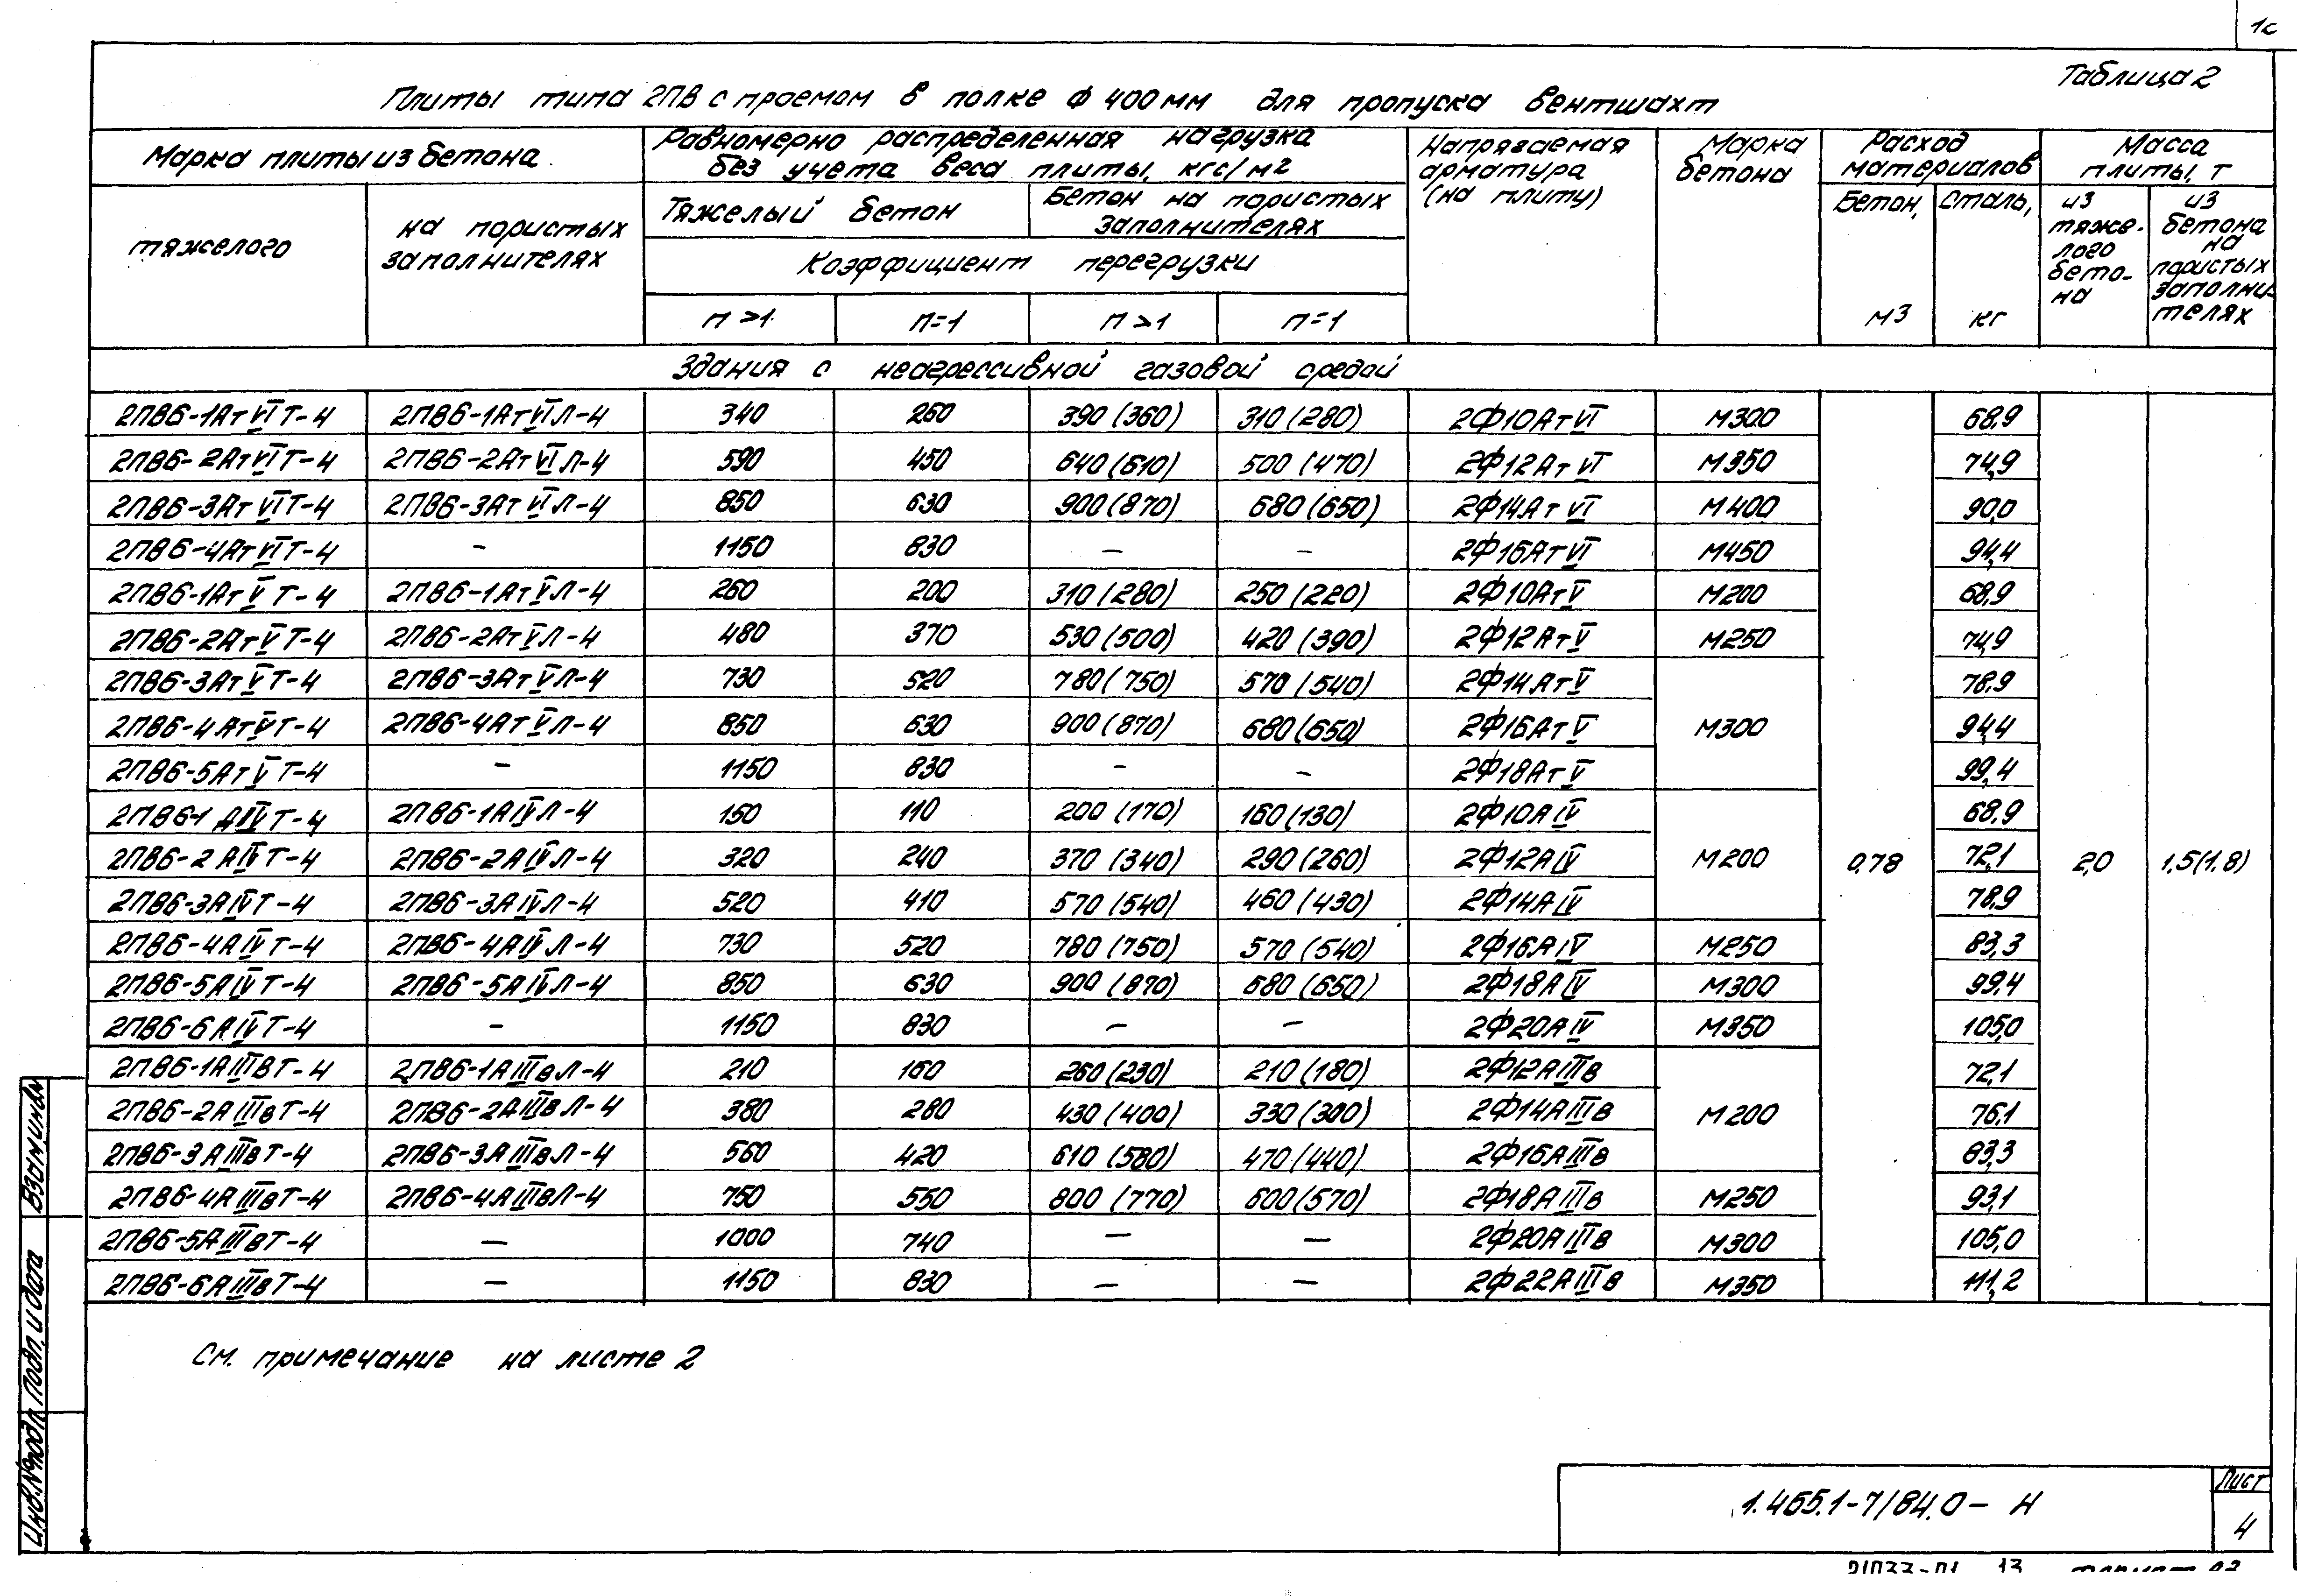 1с
Таблица 2
Плиты типа 2ПВ с проемом в полке ф 400 мм для пропуска вентшахт
Марка плиты из бетона
Равномерно распределенная нагрузка
без учета веса плиты, кгс/м2
Напрягаемая
арматура
(на плиту)
Марка
бетона
Расход
материалов
Масса
плиты, т
тяжелого
на пористых
заполнителях
Тяжелый бетон
Бетон на пористых
заполнителях
Бетон,
м3
Сталь,
кг
из
тяже-
лого
бето-
на
из
бетона
на
пористых
заполни-
телях
Коэффициент перегрузки
п >1 п=1 п >1 п=1
Здания с неагрессивной газовой средой
2ПВ6-1АтVIТ-4 2ПВ6-1АтVIЛ-4 340 260 390 (360) 310 (280) 2Ф10АтVI М300 68,9
2ПВ6-2АтVIТ-4 2ПВ6-2АтVIЛ-4 590 450 640 (610) 500 (470) 2Ф12АтVI М350 74,9
2ПВ6-3АтVIТ-4 2ПВ6-3АтVIЛ-4 850 630 900 (870) 680 (650) 2Ф14АтVI М400 90,0
2ПВ6-4АтVIТ-4 – 1150 830 – – 2Ф16АтVI М450 94,4
2ПВ6-1АтVТ-4 2ПВ6-1АтVЛ-4 260 200 310 (280) 250 (220) 2Ф10АтV М200 68,9
2ПВ6-2АтVТ-4 2ПВ6-2АтVЛ-4 480 370 530 (500) 420 (390) 2Ф12АтV М250 74,9
2ПВ6-3АтVТ-4 2ПВ6-3АтVЛ-4 730 520 780 (750) 570 (540) 2Ф14АтV 78,9
2ПВ6-4АтVТ-4 2ПВ6-4АтVЛ-4 850 630 900 (870) 680 (650) 2Ф16АтV М300 94,4
2ПВ6-5АтVТ-4 – 1150 830 – – 2Ф18АтV 99,4
2ПВ6-1АIVТ-4 2ПВ6-1АIVЛ-4 150 110 200 (170) 160 (130) 2Ф10АIV 68,9
2ПВ6-2АIVТ-4 2ПВ6-2АIVЛ-4 320 240 370 (340) 290 (260) 2Ф12АIV М200 0,78 72,1 2,0 1,5(1,8)
2ПВ6-3АIVТ-4 2ПВ6-3АIVЛ-4 520 410 570 (540) 460 (430) 2Ф14АIV 78,9
2ПВ6-4АIVТ-4 2ПВ6-4АIVЛ-4 730 520 780 (750) 570 (540) 2Ф16АIV М250 83,3
2ПВ6-5АIVТ-4 2ПВ6-5АIVЛ-4 850 630 900 (870) 680 (650) 2Ф18АIV М300 99,4
2ПВ6-6АIVТ-4 – 1150 830 – – 2Ф20АIV М350 105,0
2ПВ6-1АIIIвТ-4 2ПВ6-1АIIIвЛ-4 210 160 260 (230) 210 (180) 2Ф12АIIIв 72,1
2ПВ6-2АIIIвТ-4 2ПВ6-2АIIIвЛ-4 380 280 430 (400) 330 (300) 2Ф14АIIIв М200 76,1
2ПВ6-3АIIIвТ-4 2ПВ6-3АIIIвЛ-4 560 420 610 (580) 470 (440) 2Ф16АIIIв 83,3
2ПВ6-4АIIIвТ-4 2ПВ6-4АIIIвЛ-4 750 550 800 (770) 600 (570) 2Ф18АIIIв М250 93,1
2ПВ6-5АIIIвТ-4 – 1000 740 – – 2Ф20АIIIв М300 105,0
2ПВ6-6АIIIвТ-4 – 1150 830 – – 2Ф22АIIIв М350 111,2
См. примечание на листе 2
Взам.инв№
Подп. и дата
Инв.№подл.
1.465.1-7/84.0- Н
Лист
4
13